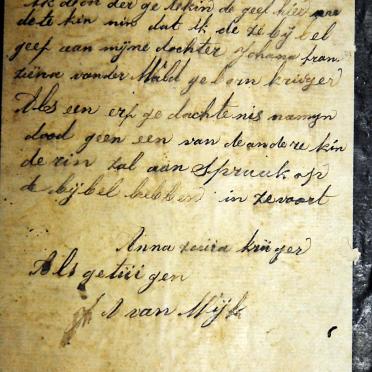 Ik don der ge tekin de geef hier
de te kin nin dat ik de ze bÿbel
geef aan mÿne dochter Johana fran
züna vander Wald geborn krüger
Als een erf ge dachte nis namÿn
dood geen een van de andere kin
derin zal aan Spraak op
de bÿbel hebben in ze voort
Anna krüger
Als getüigen
A van Wÿk